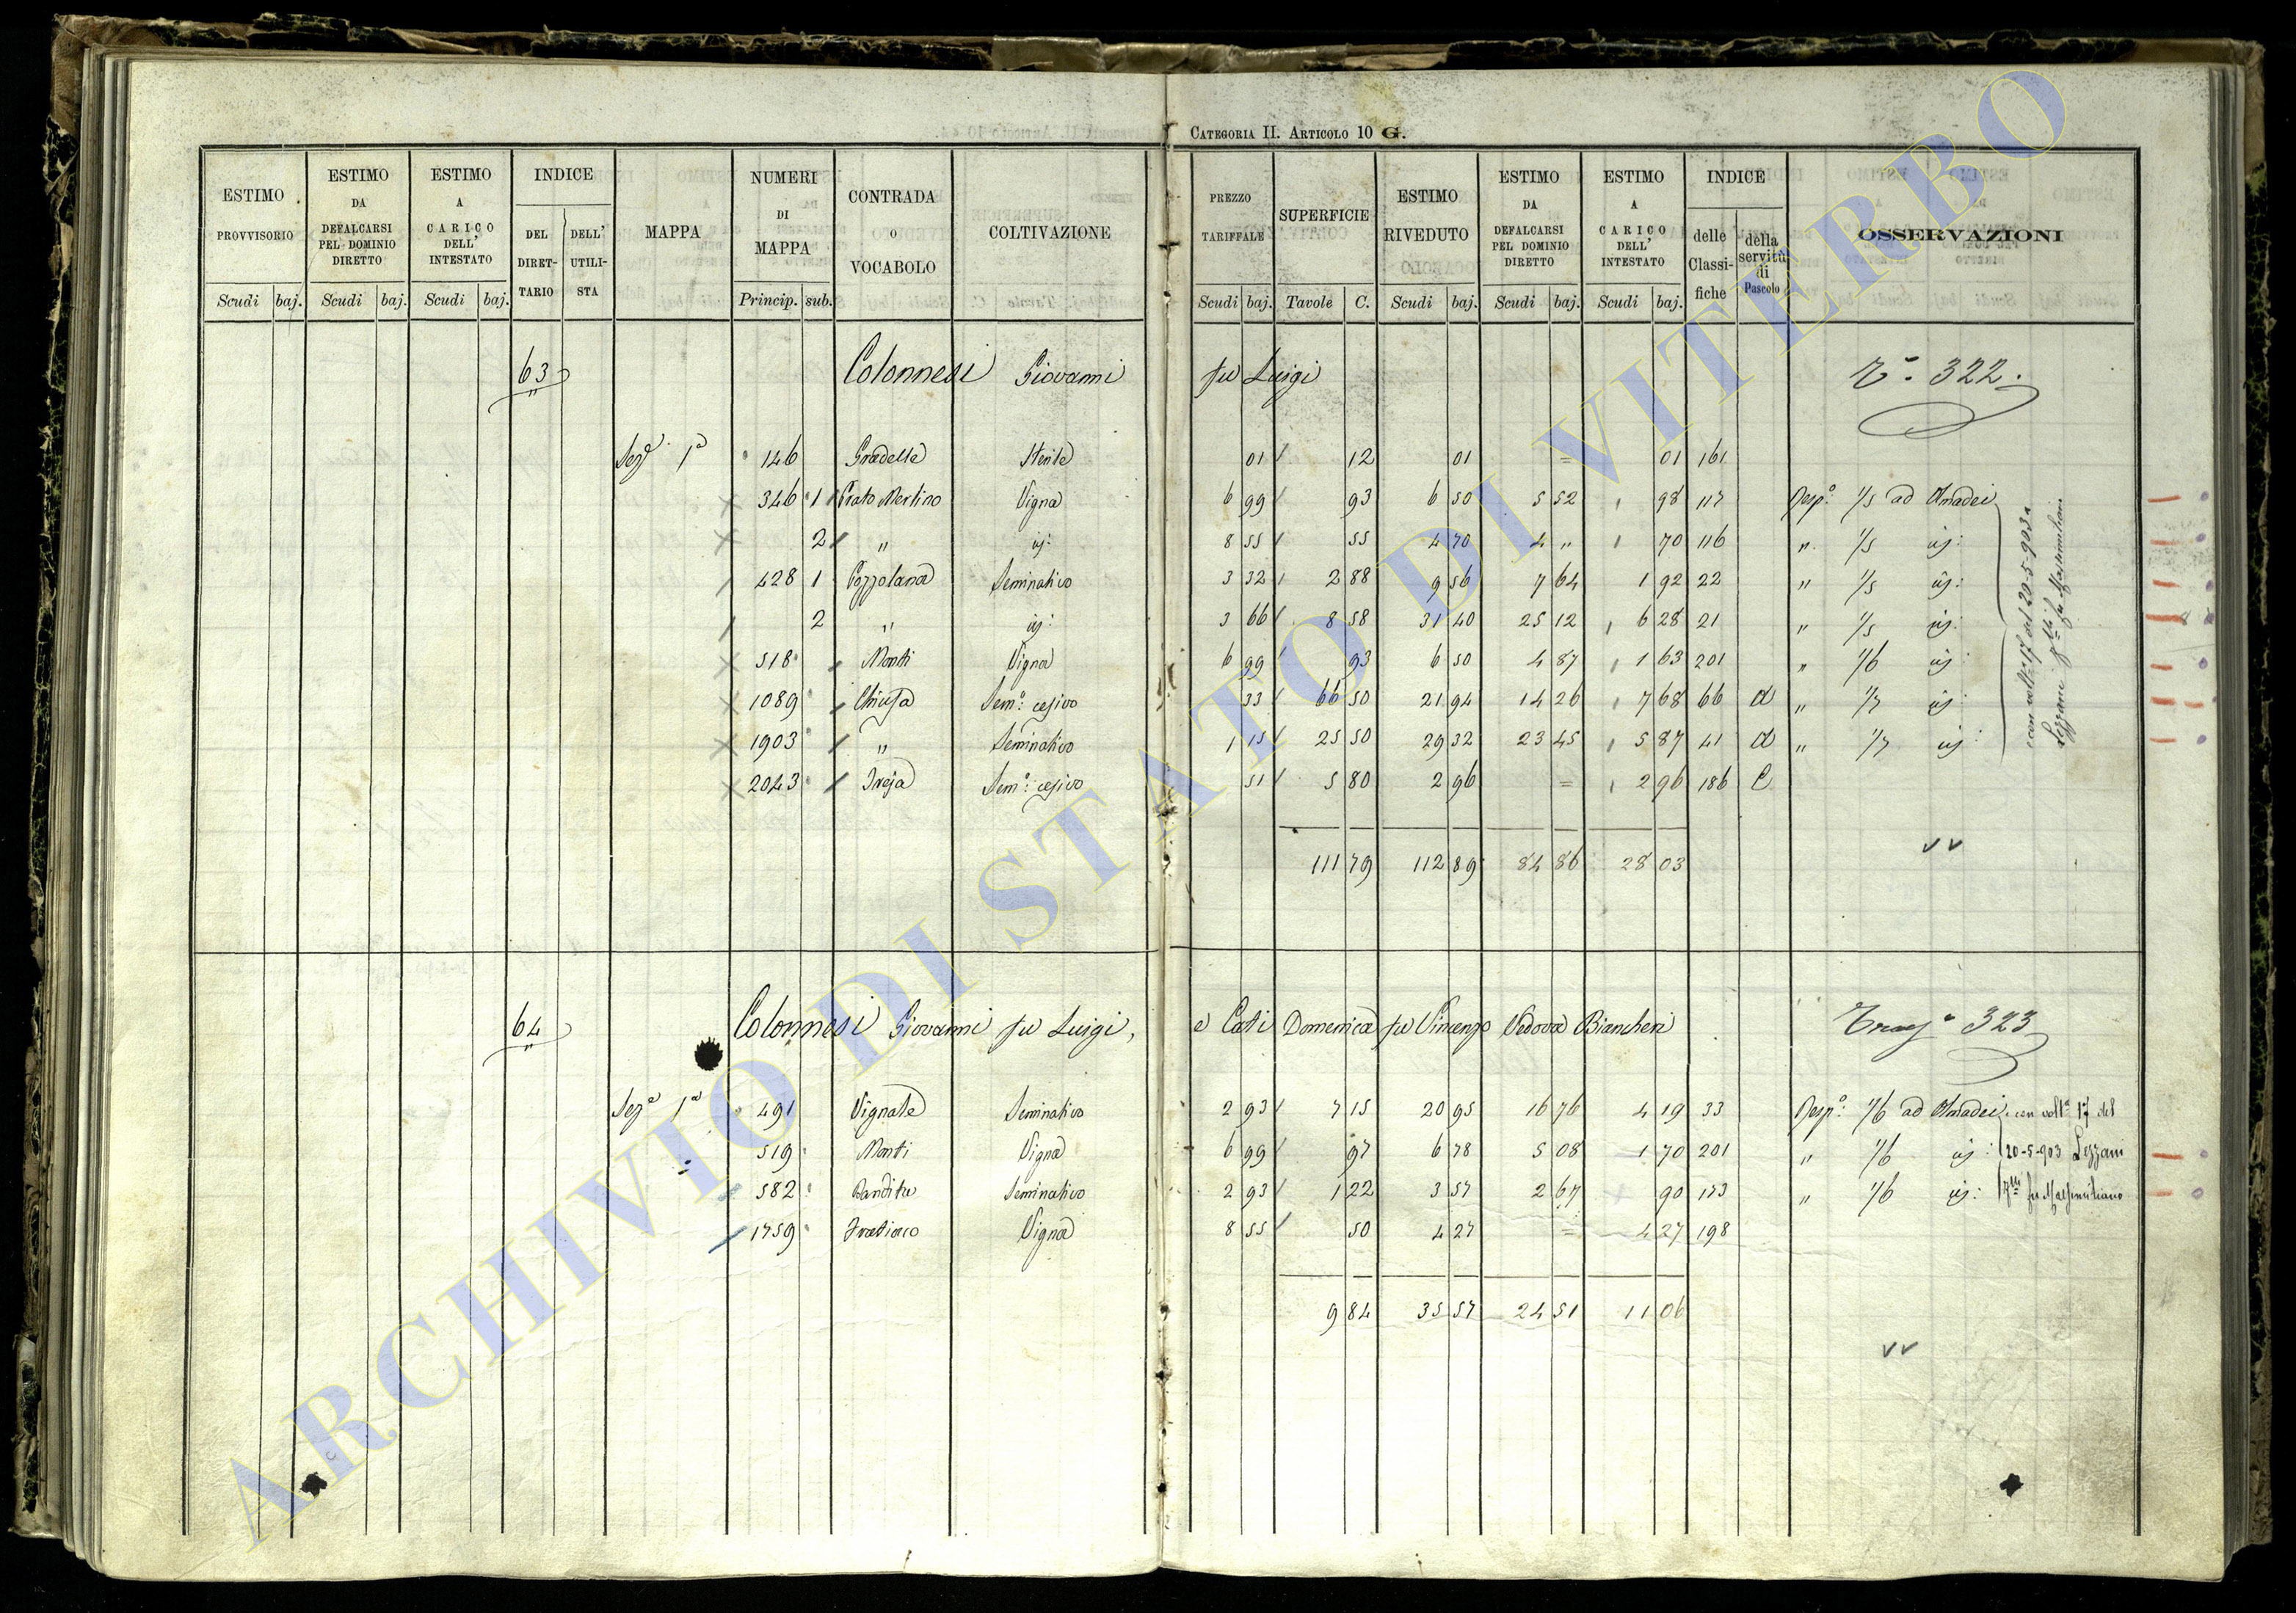 CATEGORIA II. ARTICOLO 10 G.
ESTIMO PROVVISORIO Scudi baj. ESTIMO DA DEFALCARSI PEL DOMINIO DIRETTO Scudi baj. ESTIMO A CARICO DELL' INTESTATO Scudi baj. INDICE DEL DIRET-TARIO DELL' UTILI-STA MAPPA NUMERI DI MAPPA Princip. sub. CONTRADA O VOCABOLO COLTIVAZIONE PREZZO TARIFFALE Scudi baj. SUPERFICIE Tavole C. ESTIMO RIVEDUTO Scudi baj. ESTIMO DA DEFALCARSI PEL DOMINIO DIRETTO Scudi baj. ESTIMO A CARICO DELL' INTESTATO Scudi baj. INDICE delle Classi-fiche della servitù di Pascolo OSSERVAZIONI
63 Colonnesi Giovanni fu Luigi 322.
Sezᵉ 1ᵃ 146 Gradelle Sterile 01 12 01 = 01 161
346 1 Prato Merlino Vigna 6 99 93 6 50 5 52 98 117 Resp: 1/5 ad Amadei
2 " id: 8 55 55 4 70 4 " 70 116 " 1/5 id:
428 1 Pozzolana Seminativo 3 32 2 88 9 56 7 64 1 92 22 " 1/5 id:
2 " id: 3 66 8 58 31 40 25 12 6 28 21 " 1/5 id:
518 Monti Vigna 6 99 93 6 50 4 87 1 63 201 " 1/6 id:
1089 Chiusa Semº: cesivo 33 66 50 21 94 14 26 7 68 66 a " id:
1903 " Seminativo 1 15 25 50 29 32 23 45 5 87 41 a " id:
2043 Semº: cesivo 51 5 80 2 96 = 2 96 186 C
con voltª 17 del 20-5-903 a
Lezzani fu Massimiliano
111 79 112 89 84 86 28 03
64 Colonnesi Giovanni fu Luigi, e Cati Domenica fu Vincenzo Vedova Biancheri 323
Sezᵉ 1ᵃ 491 Vignale Seminativo 2 93 7 15 20 95 16 76 4 19 33 Resp: 1/6 ad Amadei con voltª 17 del
519 Monti Vigna 6 99 97 6 78 5 08 1 70 201 " 1/6 id: 20-5-903 Lezzani
582 Bandita Seminativo 2 93 1 22 3 57 2 67 90 173 " 1/6 id: fu Massimiliano
1759 Vigna 8 55 50 4 27 = 4 27 198
9 84 35 57 24 51 11 06
ARCHIVIO DI STATO DI VITERBO